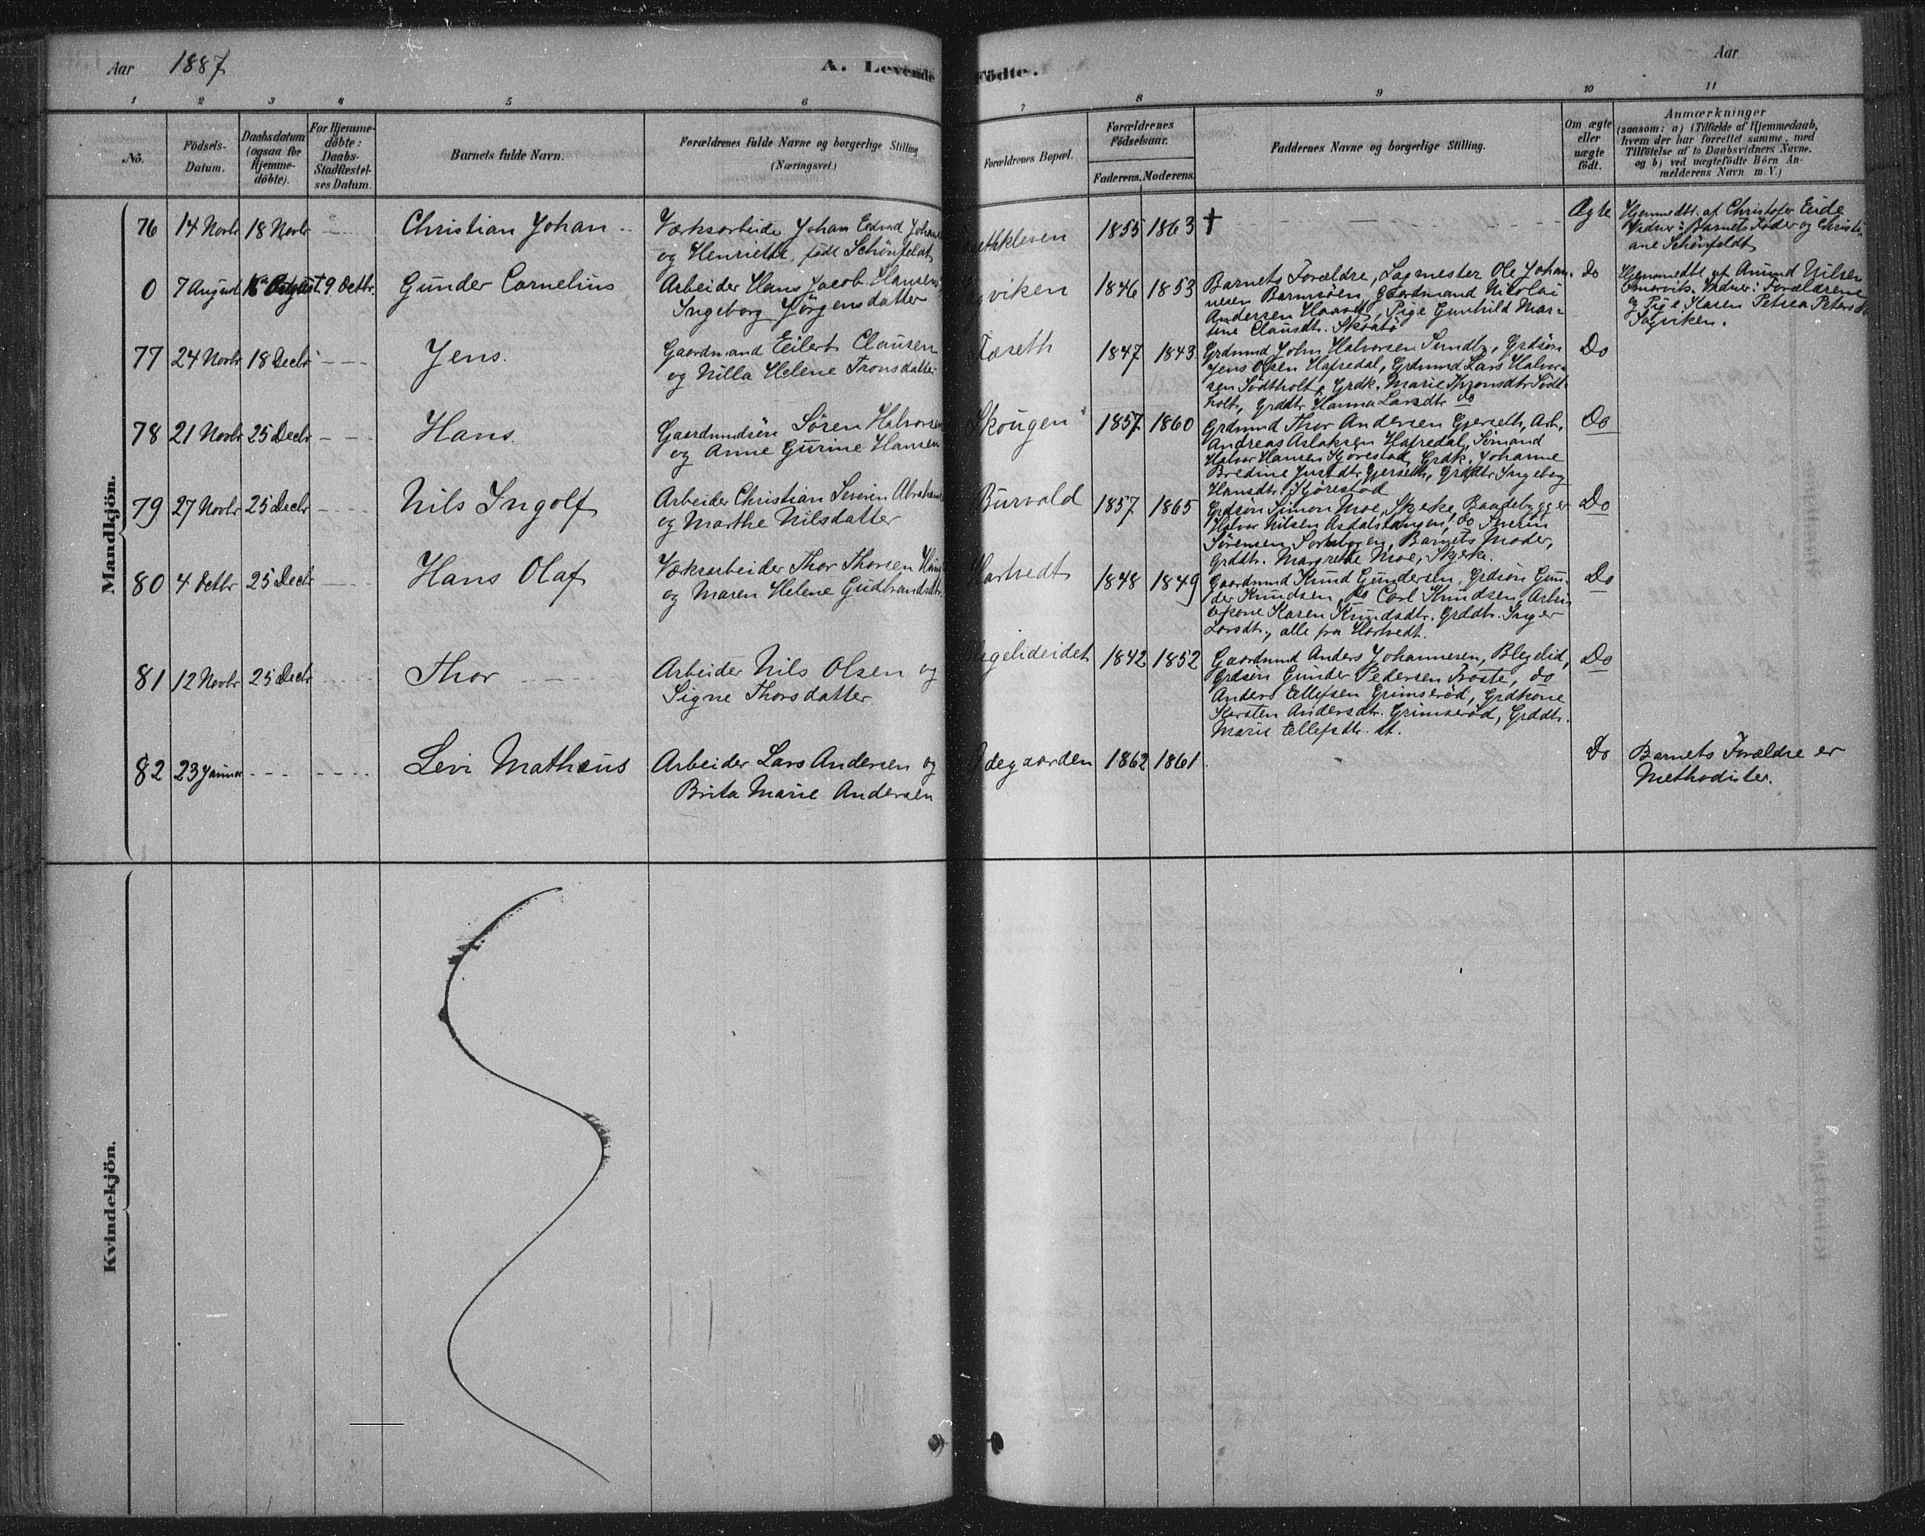 Aar 1887 A. Levende Födte. Aar
1 2 3 4 5 6 7 8 9 10 11
No. Födsels-Datum. Daabsdatum (ogsaa for Hjemme-döbte). For Hjemme-döbte: Daabs-Stadfæstel-ses Datum. Barnets fulde Navn. Forældrenes fulde Navne og borgerlige Stilling (Næringsvei.) Forældrenes Bopæl. Forældrenes Födselsaar. Faderens. Moderens. Faddernes Navne og borgerlige Stilling. Om ægte eller uægte födt. Anmærkninger (saasom: a) i Tilfælde af Hjemmedaab, hvem der har forrettet samme, med Tilföielse af to Daabsvidners Navne, og b) ved uægtefödte Börn An-melderens Navn m. V.)
Mandkjön.
76 14 Novbr 18 Novbr Christian Johan Værksarbeider Johan Edvard
og Henriette, født Schønfeldt 1855 1863 † Ægte Hjemmedbt. af Christofer Eide
Vidner: Barnets Fader og Christi-
ane Schønfeldt
0 7 August 9 Octbr Gunder Cornelius Arbeider Hans Jacob Hansen
Ingeborg Jörgensdatter 1846 1853 Barnets Forældre, Sagmester Ole Johan-
nesen Barmsöen, Gaardmand Nikolai
Andersen Haaved, Pige Gunhild Mar-
tine Clausdtr. Skaatö do Hjemmedbt. af Anund Nilsen
Vidner: Forældrene
og Pige Karen Petrea Peters
77 24 Novbr 18 Decbr Jens Gaardmand Eilert Clausen
og Nilla Helene Tronsdatter Fæseth 1847 1843 Grdmnd John Halvorsen Sundby, Grdsön
Jens Olsen Hafredal, Grdmnd Lars Halvor-
sen Södtholt, Grdk. Marie Thronsdtr Födt-
holt, Grddtr Hanna Larsdtr do Do
78 21 Novbr 25 Decbr Hans Gaardmndsön Sören Halvorsen
og Anne Gurine Hansen Skougen 1857 1860 Grdmnd Thor Andersen Gjerseth, Arb.
Andreas Aslaksen Hafredal, Sömand
Halvor Hansen Kjörestad, Grdk. Johanne
Bredine Jnstdtr Gjerseth, Grddtr Ingeborg
Hansdtr. Kjörestad Do
79 27 Novbr 25 Decbr Nils Ingolf Arbeider Christian Severin
og Marthe Nilsdatter Burvald 1857 1865 Grdsön Simon Moe, Skjerke, Baadebygger
Halvor Nilsen Asdalstangen, do Sverin
Sörensen, Barnets Moder,
Grddtr. Margrethe Moe, Skjerke. Do
80 4 Octbr 25 Decbr Hans Olaf Værksarbeider Thor Thorsen
og Maren Helene Gudbrandsdtr Hartvedt 1848 1849 Gaardmnd Knud Gundersen, Grdsön Gun-
der Knudsen, do Carl Knudsen, Arbei-
derkone Karen Knudsdtr. Grddtr. Inger
Larsdtr., alle fra Hartvedt. Do
81 12 Novbr 25 Decbr Thor Arbeider Nils Olsen og
Signe Thorsdatter. 1842 1852 Gaardmnd Anders Johannesen, Blegelid,
Grdsön Gunder Pedersen Froste, do
Anders Ellefsen Grimseröd, Grdkone
Kersten Andersdtr. Grimseröd, Grddtr.
Marie Ellefsdtr. st. Do
82 23 Januar Levi Mathæus Arbeider Lars Andersen og
Brita Marie Andersen Ödegaarden 1862 1861 Do Barnets Forældre er
Methodister.
Kvindekjön.